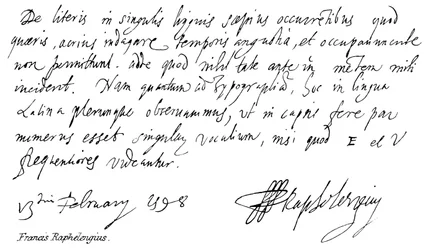 De literis in singulis linguis sæpius occurrētibus quod
quæris, acrius indagare temporis angustia, et occupatiunculæ
non permittunt. adde quod nihil tale ante in mentem mihi
incidert. Nam quantum ad Typographiā, hoc in lingua
Latina plerumque observamus, ut in capsis fere par
numerus esset singularum vocalium, nisi quod E et V
frequentiores videantur.
Februarij 1598
Raphelengius
Francis Raphelengius.